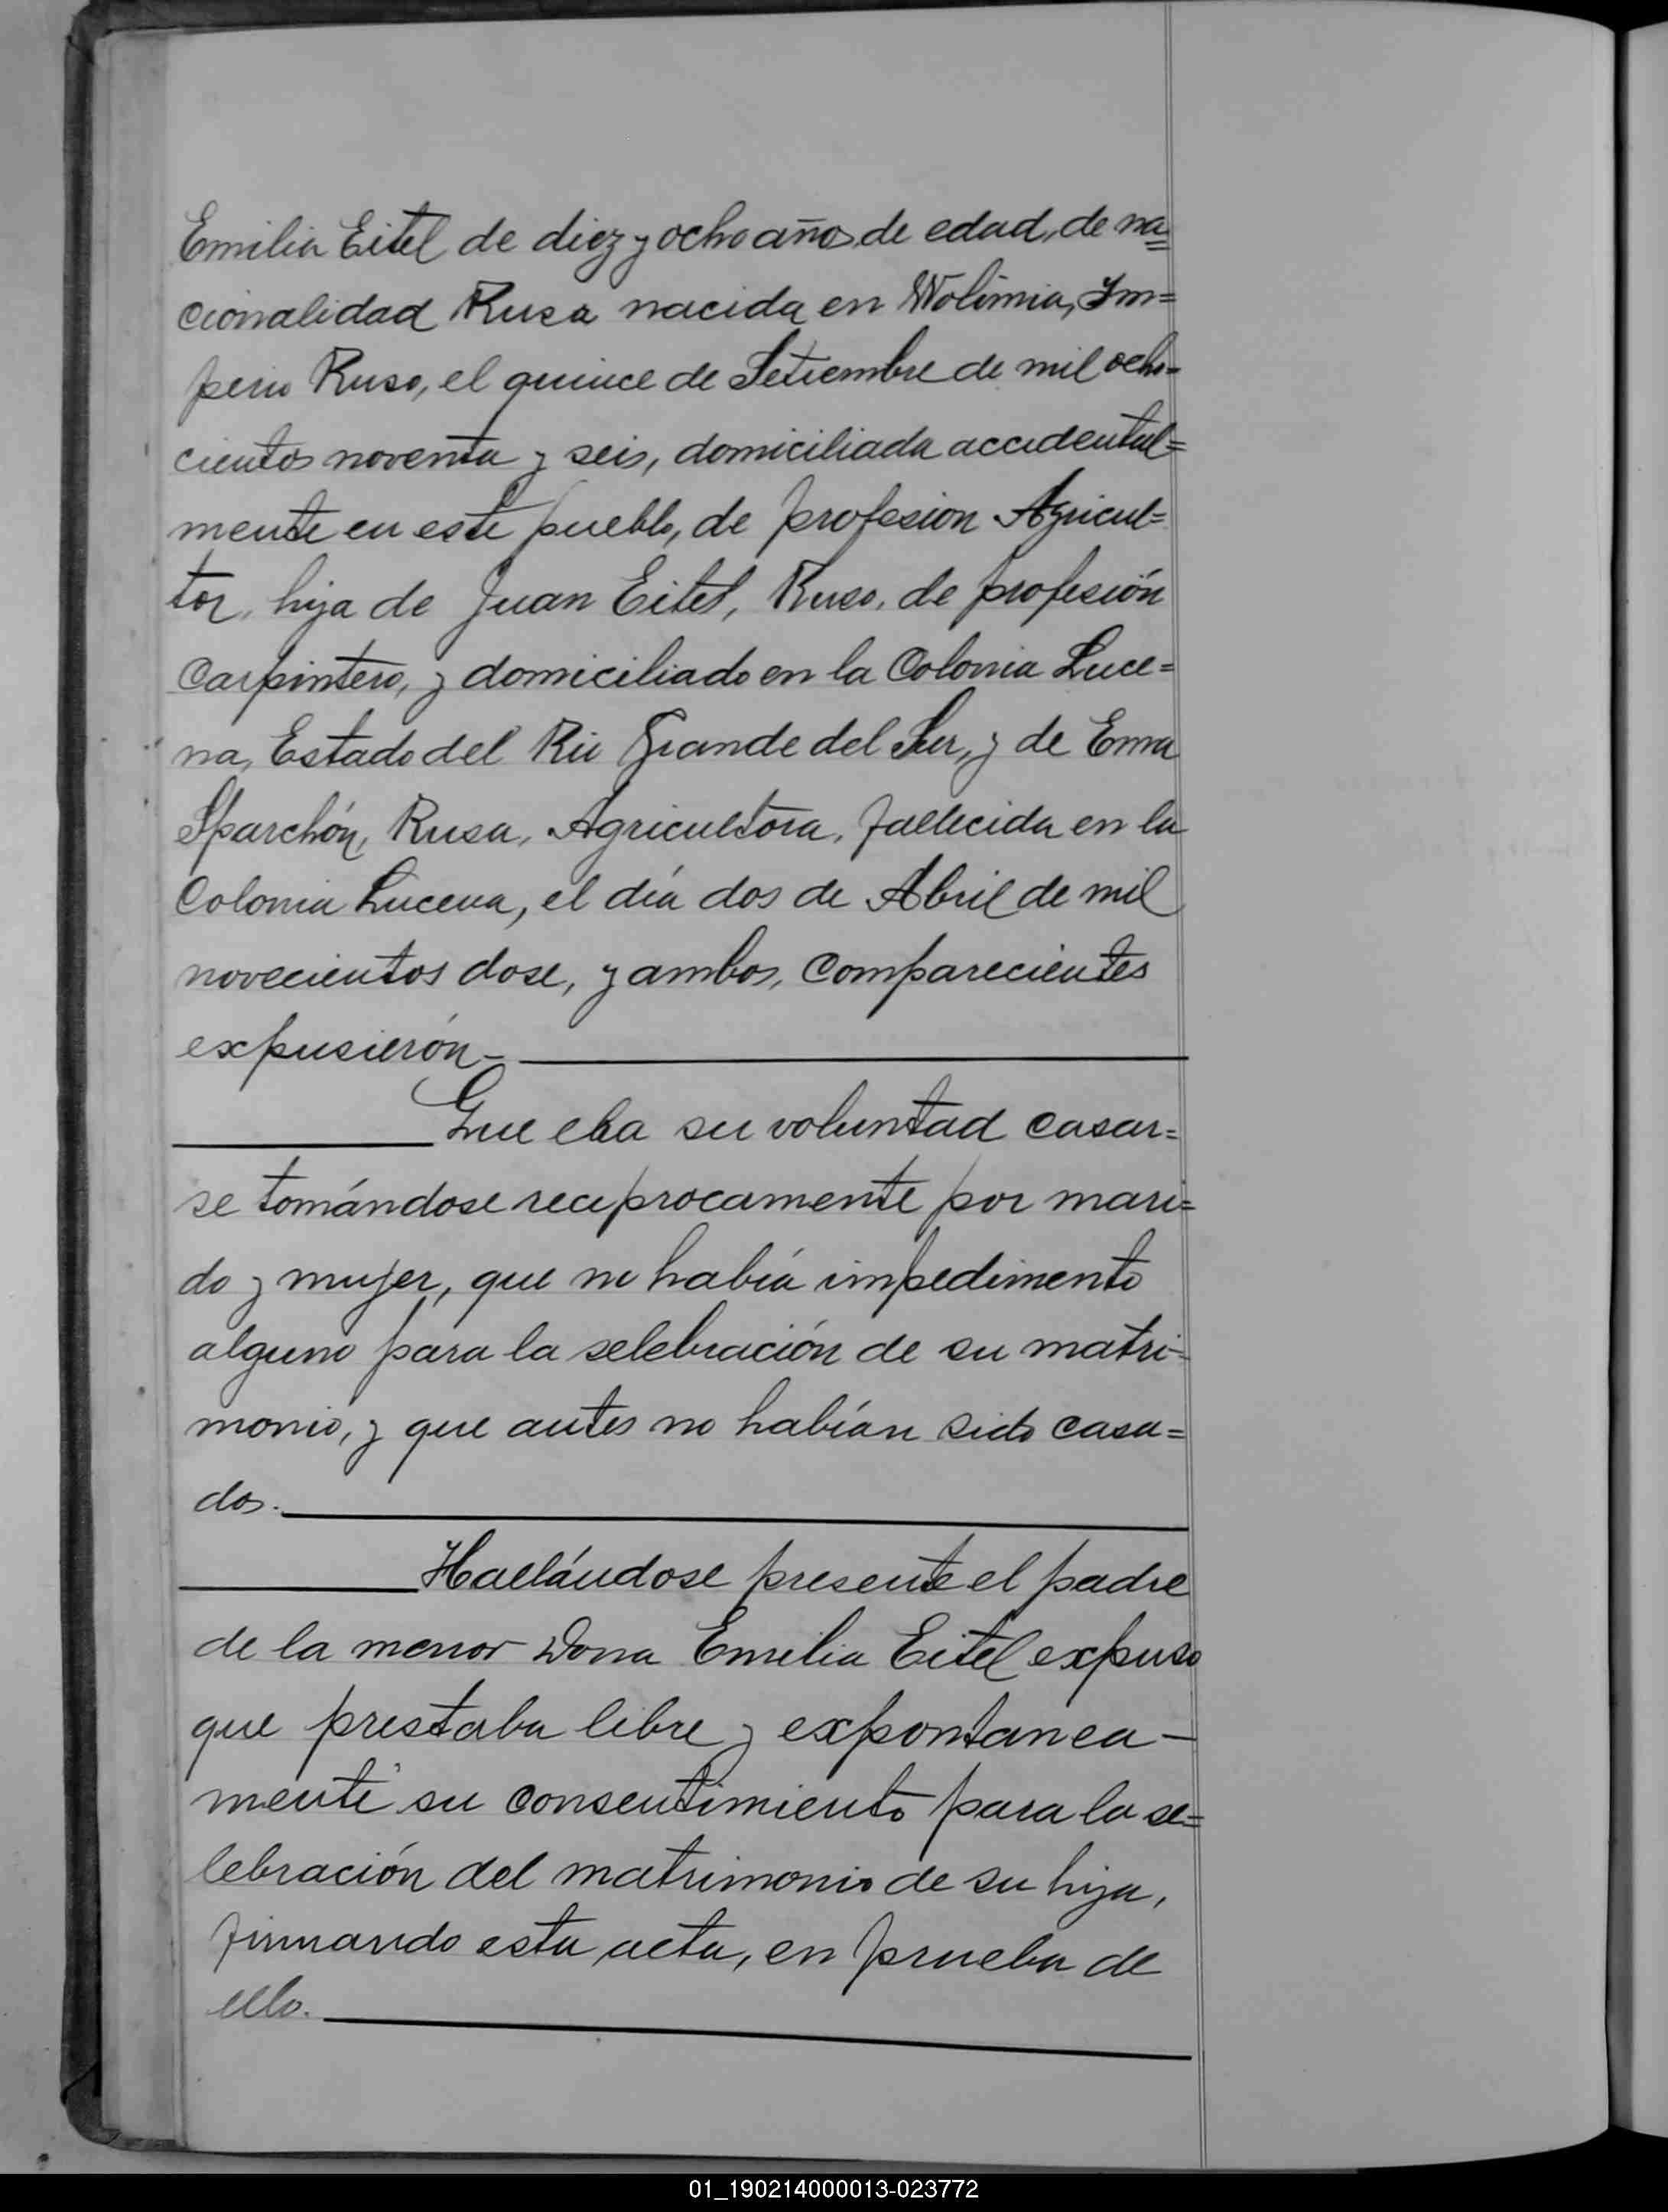 Emilia Eitel de diez y ocho años de edad, de na=
cionalidad Rusa nacida en Wolinnia, Im=
perio Ruso, el quince de Setiembre de mil ocho=
cientos noventa y seis, domiciliada accidental=
mente en este pueblo, de profesion Agricul=
tor, hija de Juan Eitel, Ruso, de profesión
Carpintero, y domiciliado en la Colonia Luce=
na, Estado del Rio Grande del Sur, y de Enma
Sparchón, Rusa, Agricultora, fallecida en la
Colonia Lucena, el día dos de Abril de mil
novecientos dose, y ambos, comparecientes
expusierón
Que era su voluntad casar=
se tomándose reciprocamente por mari=
do y mujer, que no había impedimento
alguno para la selebración de su matri-
monio, y que antes no habían sido casa=
dos.
Hallándose presente el padre
de la menor Dona Emilia Eitel expuso
que prestaba libre y expontanea-
mente su consentimiento para la se=
lebración del matrimonio de su hija,
firmando esta acta, en prueba de
ello.
01_190214000013-023772